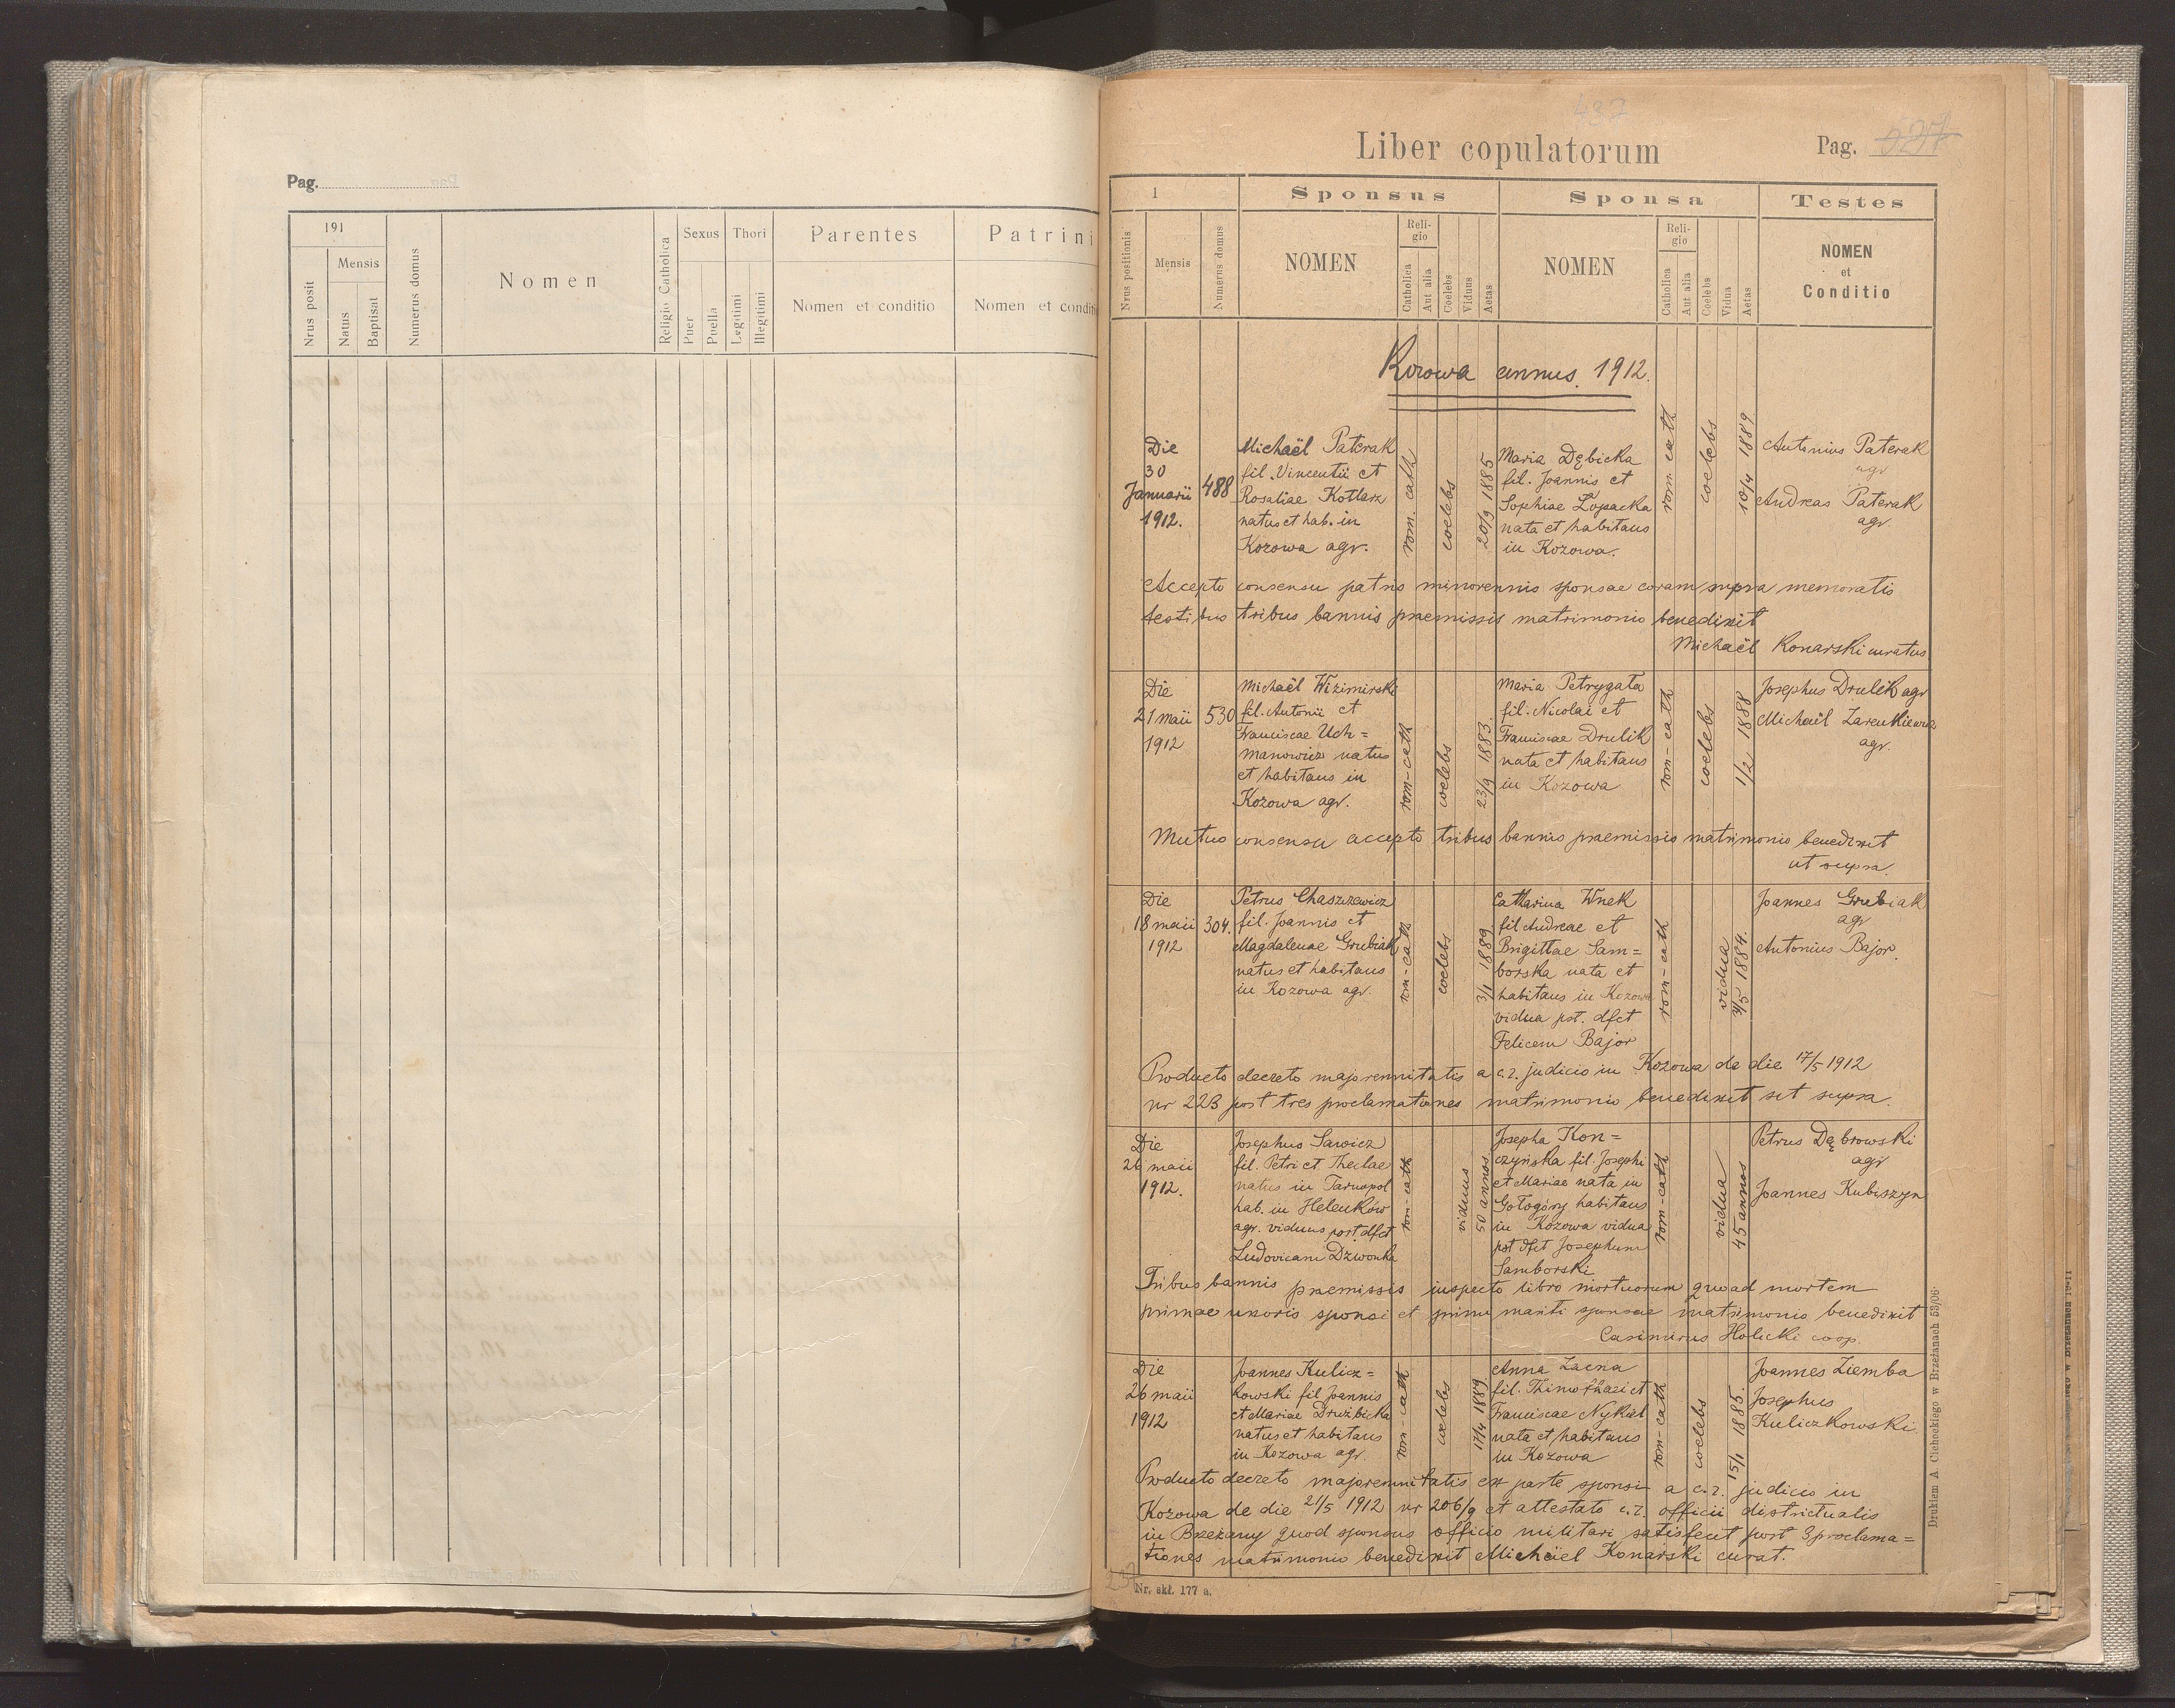 Pag.
191
Mensis
Nrus posit
Natus
Baptisat
Numerus domus
Nomen
Religio Catholica
Sexus
Puer
Puella
Thori
Legitimi
Illegitimi
Parentes
Nomen et conditio
Patrini
Nomen et conditi
437
Liber copulatorum
Pag.
1
Sponsus
Sponsa
Testes
Nrus positionis
Mensis
Numerus domus
NOMEN
Religio
Catholica
Aut alia
Coelebs
Viduus
Aetas
NOMEN
Religio
Catholica
Aut alia
Coelebs
Vidua
Aetas
NOMEN
et
Conditio
Kozowa annus 1912.
Die
30
Januarii
1912.
488
Michaël Paterak
fil. Vincentii et
Rosaliae Kotlarz
natus et hab. in
Kozowa agr.
rom. cath
coelebs
20/9 1885
Maria Dębicka
fil. Joannis et
Sophiae Łopacka
nata et habitans
in Kozowa.
rom. cath
coelebs
10/4 1889
Antonius Paterak
agr
Andreas Paterak
agr.
Accepto consensu patris minorennis sponsae coram supra memoratis
testibus tribus bannis praemissis matrimonio benedixit
Michaël Konarski curatus
Die
21 maii
1912
530
Michaël Wizimirski
fil. Antonii et
Franciscae Uch=
manowicz natus
et habitans in
Kozowa agr.
rom-cath
coelebs
23/9 1883.
Maria Petrygata
fil. Nicolai et
Franciscae Drulik
nata et habitans
in Kozowa
rom-cath
coelebs
1/2 1888
Josephus Drulik agr
Michaël Zarenkiewicz
agr.
Mutuo consensu accepto tribus bannis praemissis matrimonio benedixit
ut supra.
Die
18 maii
1912
304.
Petrus Chaszczewicz
fil. Joannis et
Magdalenae Grubiak
natus et habitans
in Kozowa agr.
rom-cath
coelebs
3/1 1889
Catharina Wnek
fil Andreae et
Brigittae Sam=
borska nata et
habitans in Kozowa
vidua pst. dfct
Felicem Bajor
rom-cath
vidua
/5 1884.
Joannes Grubiak
agr
Antonius Bajor.
Producto decreto majorennitatis a c.r. judicio in Kozowa de die 17/5 1912
nr 223 post tres proclamationes matrimonio benedixit ut supra.
Die
26 maii
1912.
Josephus Sawicz
fil. Petri et Theclae
natus in Tarnopol
hab. in Helenków
agr. viduus post dfct
Ludovicam Dzwonka
rom-cath
viduus
50 annos
Josepha Kon=
czyńska fil. Josephi
et Mariae nata in
Gołogóry habitans
in Kozowa vidua
pst dfct Josephum
Samborski
rom-cath
vidua
45 annos
Petrus Dąbrowski
agr
Joannes Kubiszyn
Tribus bannis praemissis inspecto libro mortuorum quoad mortem
primae uxoris sponsi et primi mariti sponsae matrimonio benedixit
Casimirus Holicki coop.
Die
26 maii
1912
Joannes Kulicz=
kowski fil Joannis
et Mariae Drużbicka
natus et habitans
in Kozowa agr.
rom-cath
coelebs
17/4 1889
Anna Łacna
fil. Thimothaei et
Franciscae Nykiel
nata et habitans
in Kozowa
rom-cath
coelebs
15/1 1885.
Joannes Ziemba
Josephus
Kuliczkowski
Producto decreto majorennitatis ex parte sponsi a c.r. judicio in
Kozowa de die 21/5 1912 nr 206/9 et attestato c.r. officii districtualis
in Brzeżany quod sponsus officio militari satisfecit post 3 proclama=
tiones matrimonio benedixit Michaël Konarski curat.
Nr. skł. 177 a.
Drukiem A. Cichockiego w Brzeżanach 53/06.